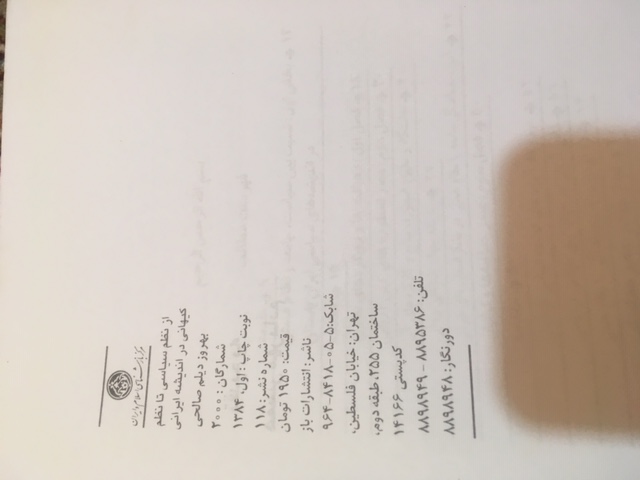 مرکز بازشناسی اسلام و ایران
از نظم سیاسی تا نظم
کیهانی در اندیشه ایرانی
بهروز دیلم صالحی
شمارگان: ۲۰۰۰
نوبت چاپ: اول، ۱۳۸۴
شماره نشر: ۱۱۸
قیمت: ۱۹۵۰ تومان
ناشر: انتشارات باز
شابک: ۵-۰۵-۸۴۱۸-۹۶۴
تهران: خیابان فلسطین،
ساختمان ۲۵۵، طبقه دوم،
کدپستی ۱۴۱۶۶
تلفن: ۸۸۹۵۳۸۶ - ۸۸۹۸۹۴۹
دورنگار: ۸۸۹۸۹۴۸